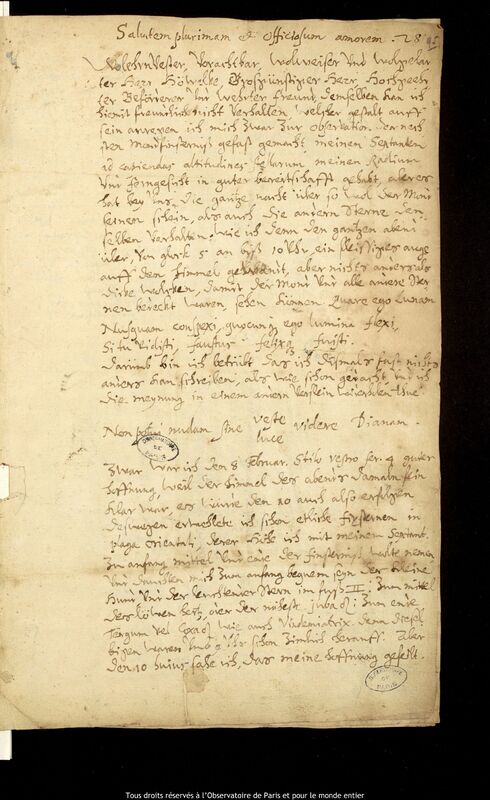 Salutem plurimam et officiosum amorem. 28
WolEhrnVester, Vorachtbar, Wolweiser Und Wolgelar
ter Herr Höwelke, Großgünstiger Herr, Hochgeehr
ter Beförderer Und Wehrter freund, demselben kan ich
hiemit freundlich nicht Verhalten, welcher gestalt auff
sein anregen ich mich zwar zur observation der nech
sten Mondfinsternus gefast gemacht, meinen Sextanten
ad capiendas altitudines stellarum meinen Radium
Und in guter bereitschafft gehabt, aber es
hat bey Uns die gantze nacht über so wol der Mond
keinen schein, als auch die andern Sterne den
selben Verhalten. Wie ich denn den gantzen abend
über, Von glock 5 an biß 10 Uhr ein fleissiges auge
auff den himmel gewandt, aber nichts anders als
dicke wolcken, damit der Mond Und alle andere Ster
nen bedeckt waren sehen können. Quare ego Lunam
Nusquam conspexi, quocunq; ego lumina flexi,
Si tu vidisti, faustus felixq; fuisti.
Darumb bin ich betrübt das ich dißmals fast nichts
anders kan schreiben, als wie schon gedacht, Und ich
die meynung in einem andern Verßlein
Non potui nudam sine veste videre Dianam.
luce
Zwar war ich den 8 Februar. Stilo vestro fer. 4 guter
hoffnung, weil der himmel des abends damals fein
klar war, es würde den 10 auch also erfolgen
Deswegen erwehlete ich schon etliche fixsternen in
plaga orientali, derer höhe ich mit meinem Sextant.
Zu anfang mittel Und ende der finsternuß wolte nemen
Und dauchten mich Zum anfang bequem seyn der kleine
Hund Und der Stern im fuß ♊: Zum mittel
des Löwen hertz, oder der nöhest juba ♌: Zum ende
Tergum vel Cauda ♌ wie auch Vindemiatrix. denn diesel
bigen waren Umb 9 Uhr schon Zimlich herauff. Aber
den 10 huius sahe ich, das meine hoffnung gefeilt.
OBSERVATOIRE DE PARIS
OBSERVATOIRE DE PARIS
Tous droits réservés à l'Observatoire de Paris et pour le monde entier